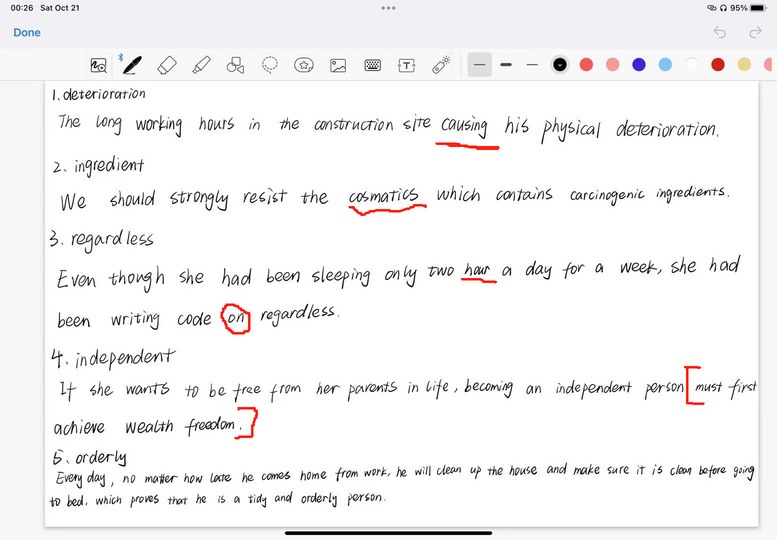 00:26 Sat Oct 21
95%
Done
1. deterioration
The long working hours in the construction site causing his physical deterioration.
2. ingredient
We should strongly resist the cosmatics which contains carcinogenic ingredients.
3. regardless
Even though she had been sleeping only two hour a day for a week, she had
been writing code on regardless.
4. independent
If she wants to be free from her parents in life, becoming an independent person must first
achieve wealth freedom.
5. orderly
Every day, no matter how late he comes home from work, he will clean up the house and make sure it is clean before going
to bed, which proves that he is a tidy and orderly person.